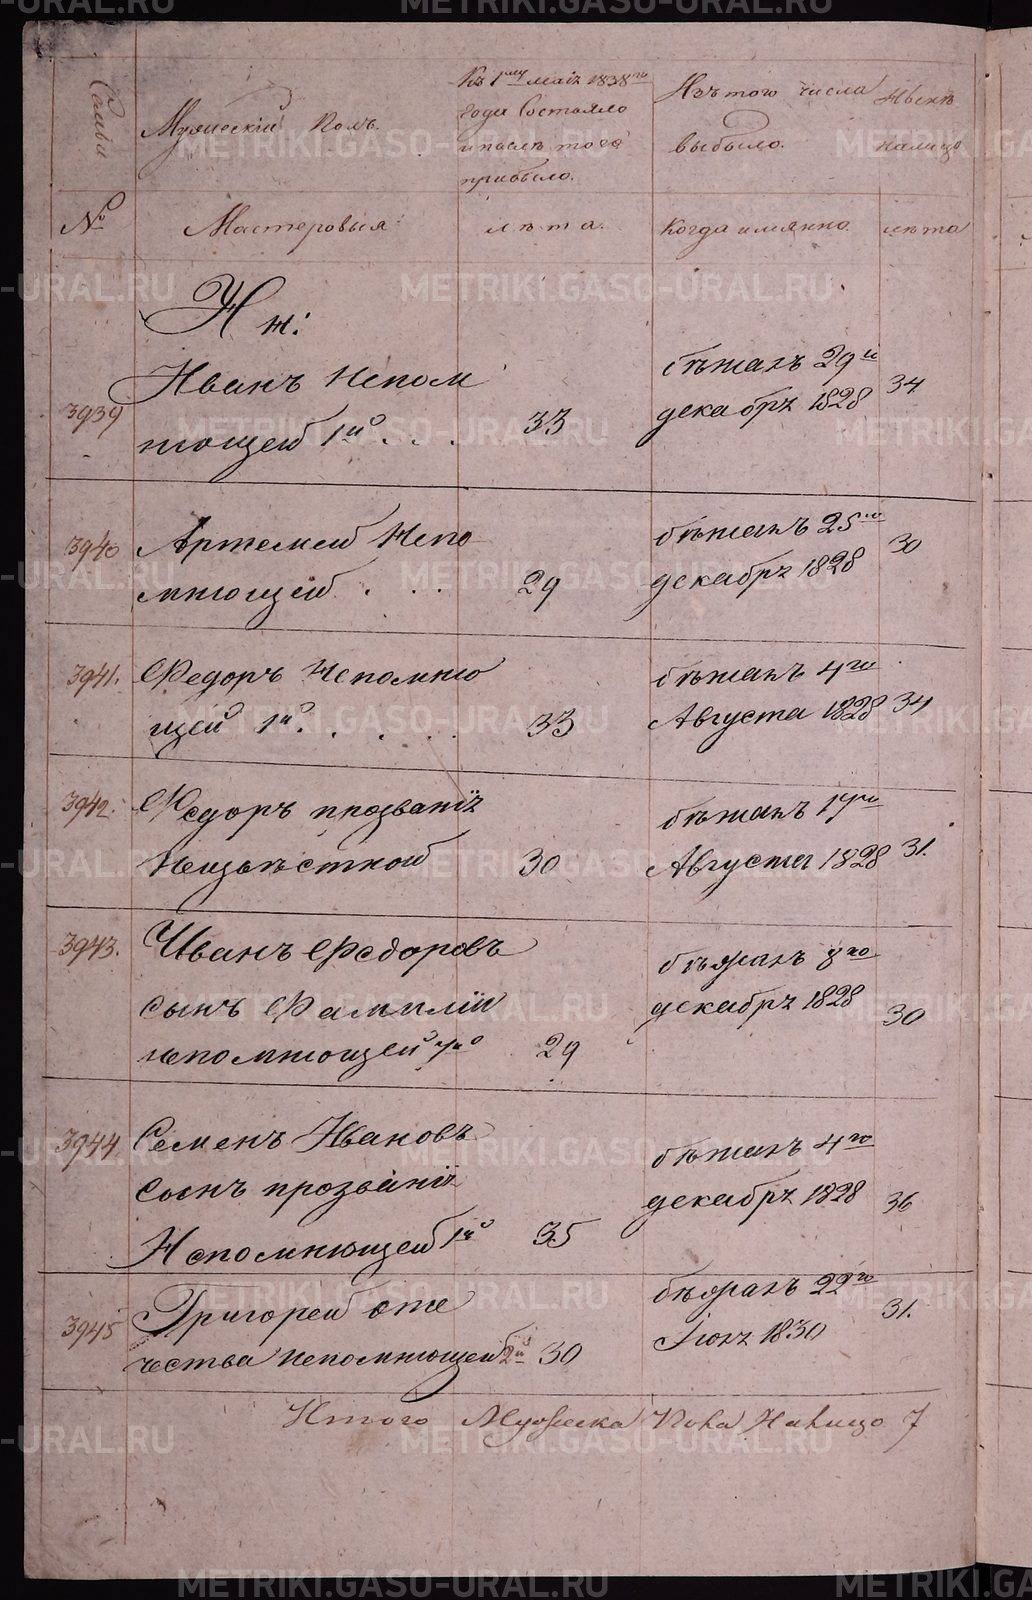 Семьи
Мужескій Полъ.
Къ 1му маія 1838го
года состояло
и послѣ того
прибыло.
Изъ того числа
выбыло.
Нынѣ
налицо
№
Мастеровыя:
лѣта.
Когда имянно
лѣта
Нн:
3939
Иванъ Непом
нющей 1й . . .
33
бѣжалъ 29го
декабря 1828
34
3940
Артемей Непо
мнющей . . .
29
бѣжалъ 25го
декабря 1828
30
3941.
Федоръ Непомню
щей 1й . . . .
33
бѣжалъ 4го
Августа 1828
34
3942.
Федоръ прозванія
Неизвѣстной
30
бѣжалъ 17го
Августа 1828
31.
3943.
Иванъ Федоровъ
сынъ Фамиліи
непомнющей
29
бѣжалъ 8го
декабря 1828
30
3944
Семенъ Ивановъ
сынъ прозванія
Непомнющей 1й
35
бѣжалъ 4го
декабря 1828
36
3945
Григорей оте
чества непомнющей 2й
30
бѣжалъ 22го
Іюля 1830
31.
Итого Мужеска Пола Налицо 7
METRIKI.GASO-URAL.RU